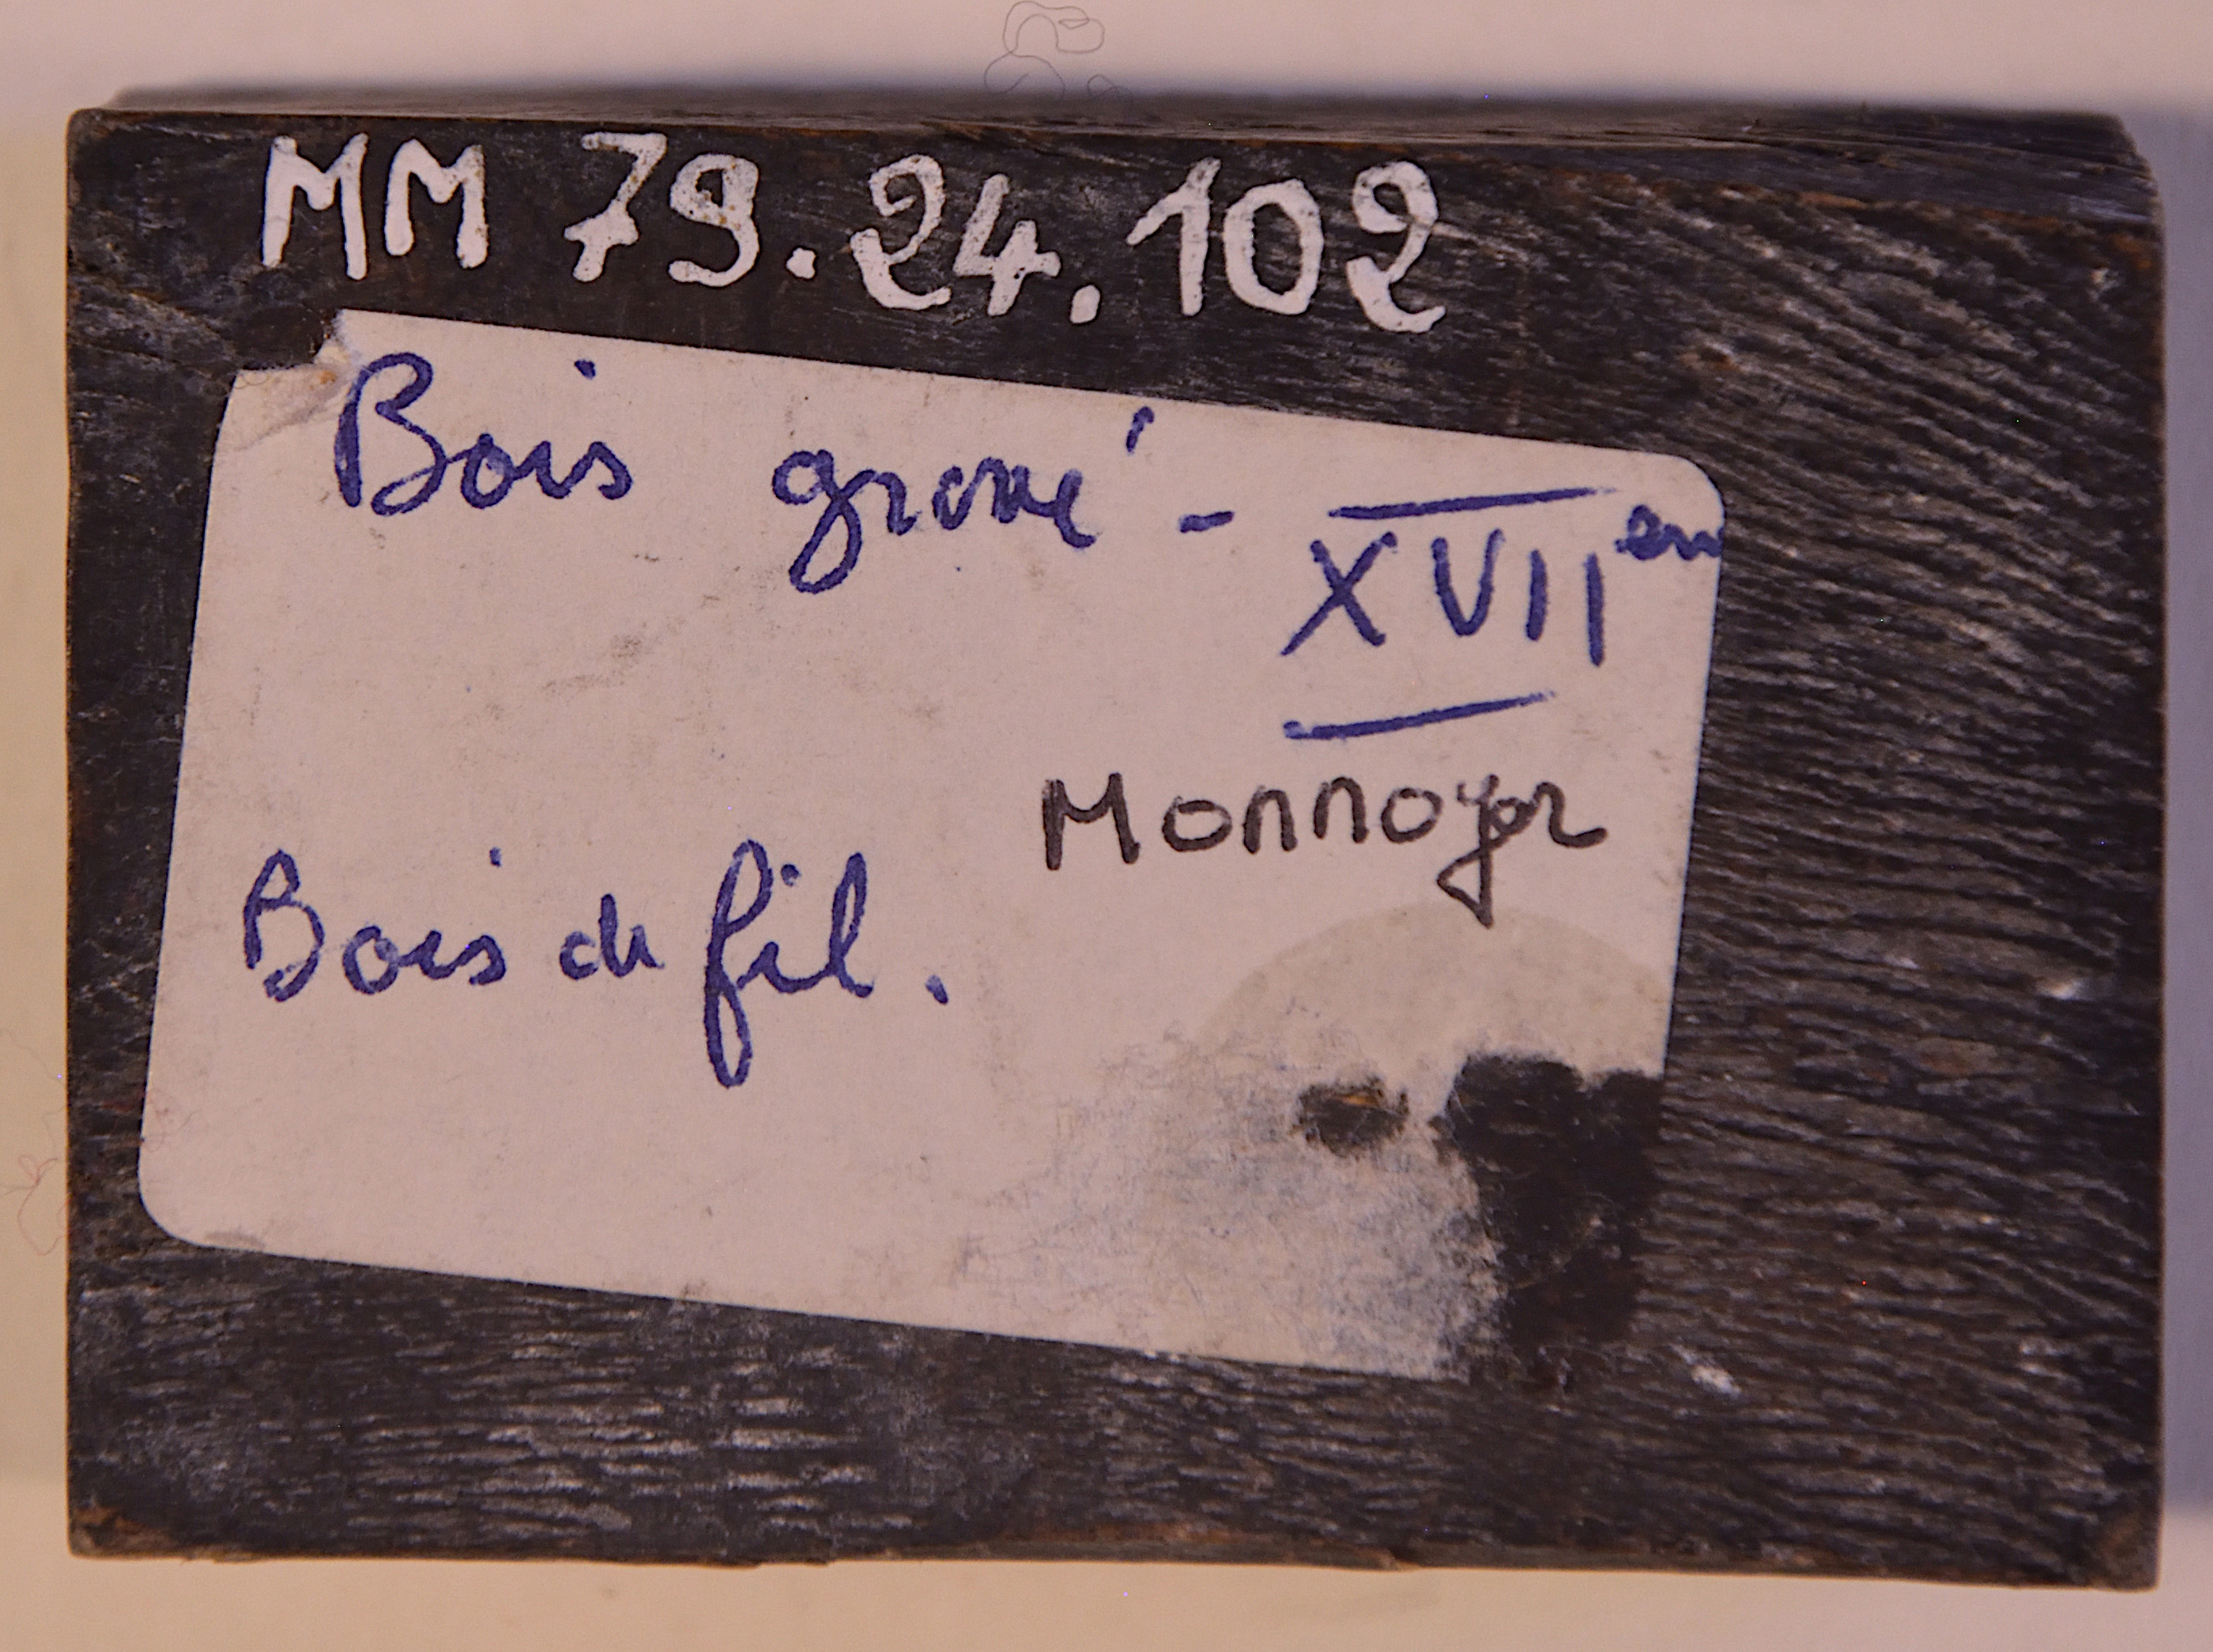 MM 79.24.102
Bois gravé - XVIIem
Monnoyer
Bois de fil.